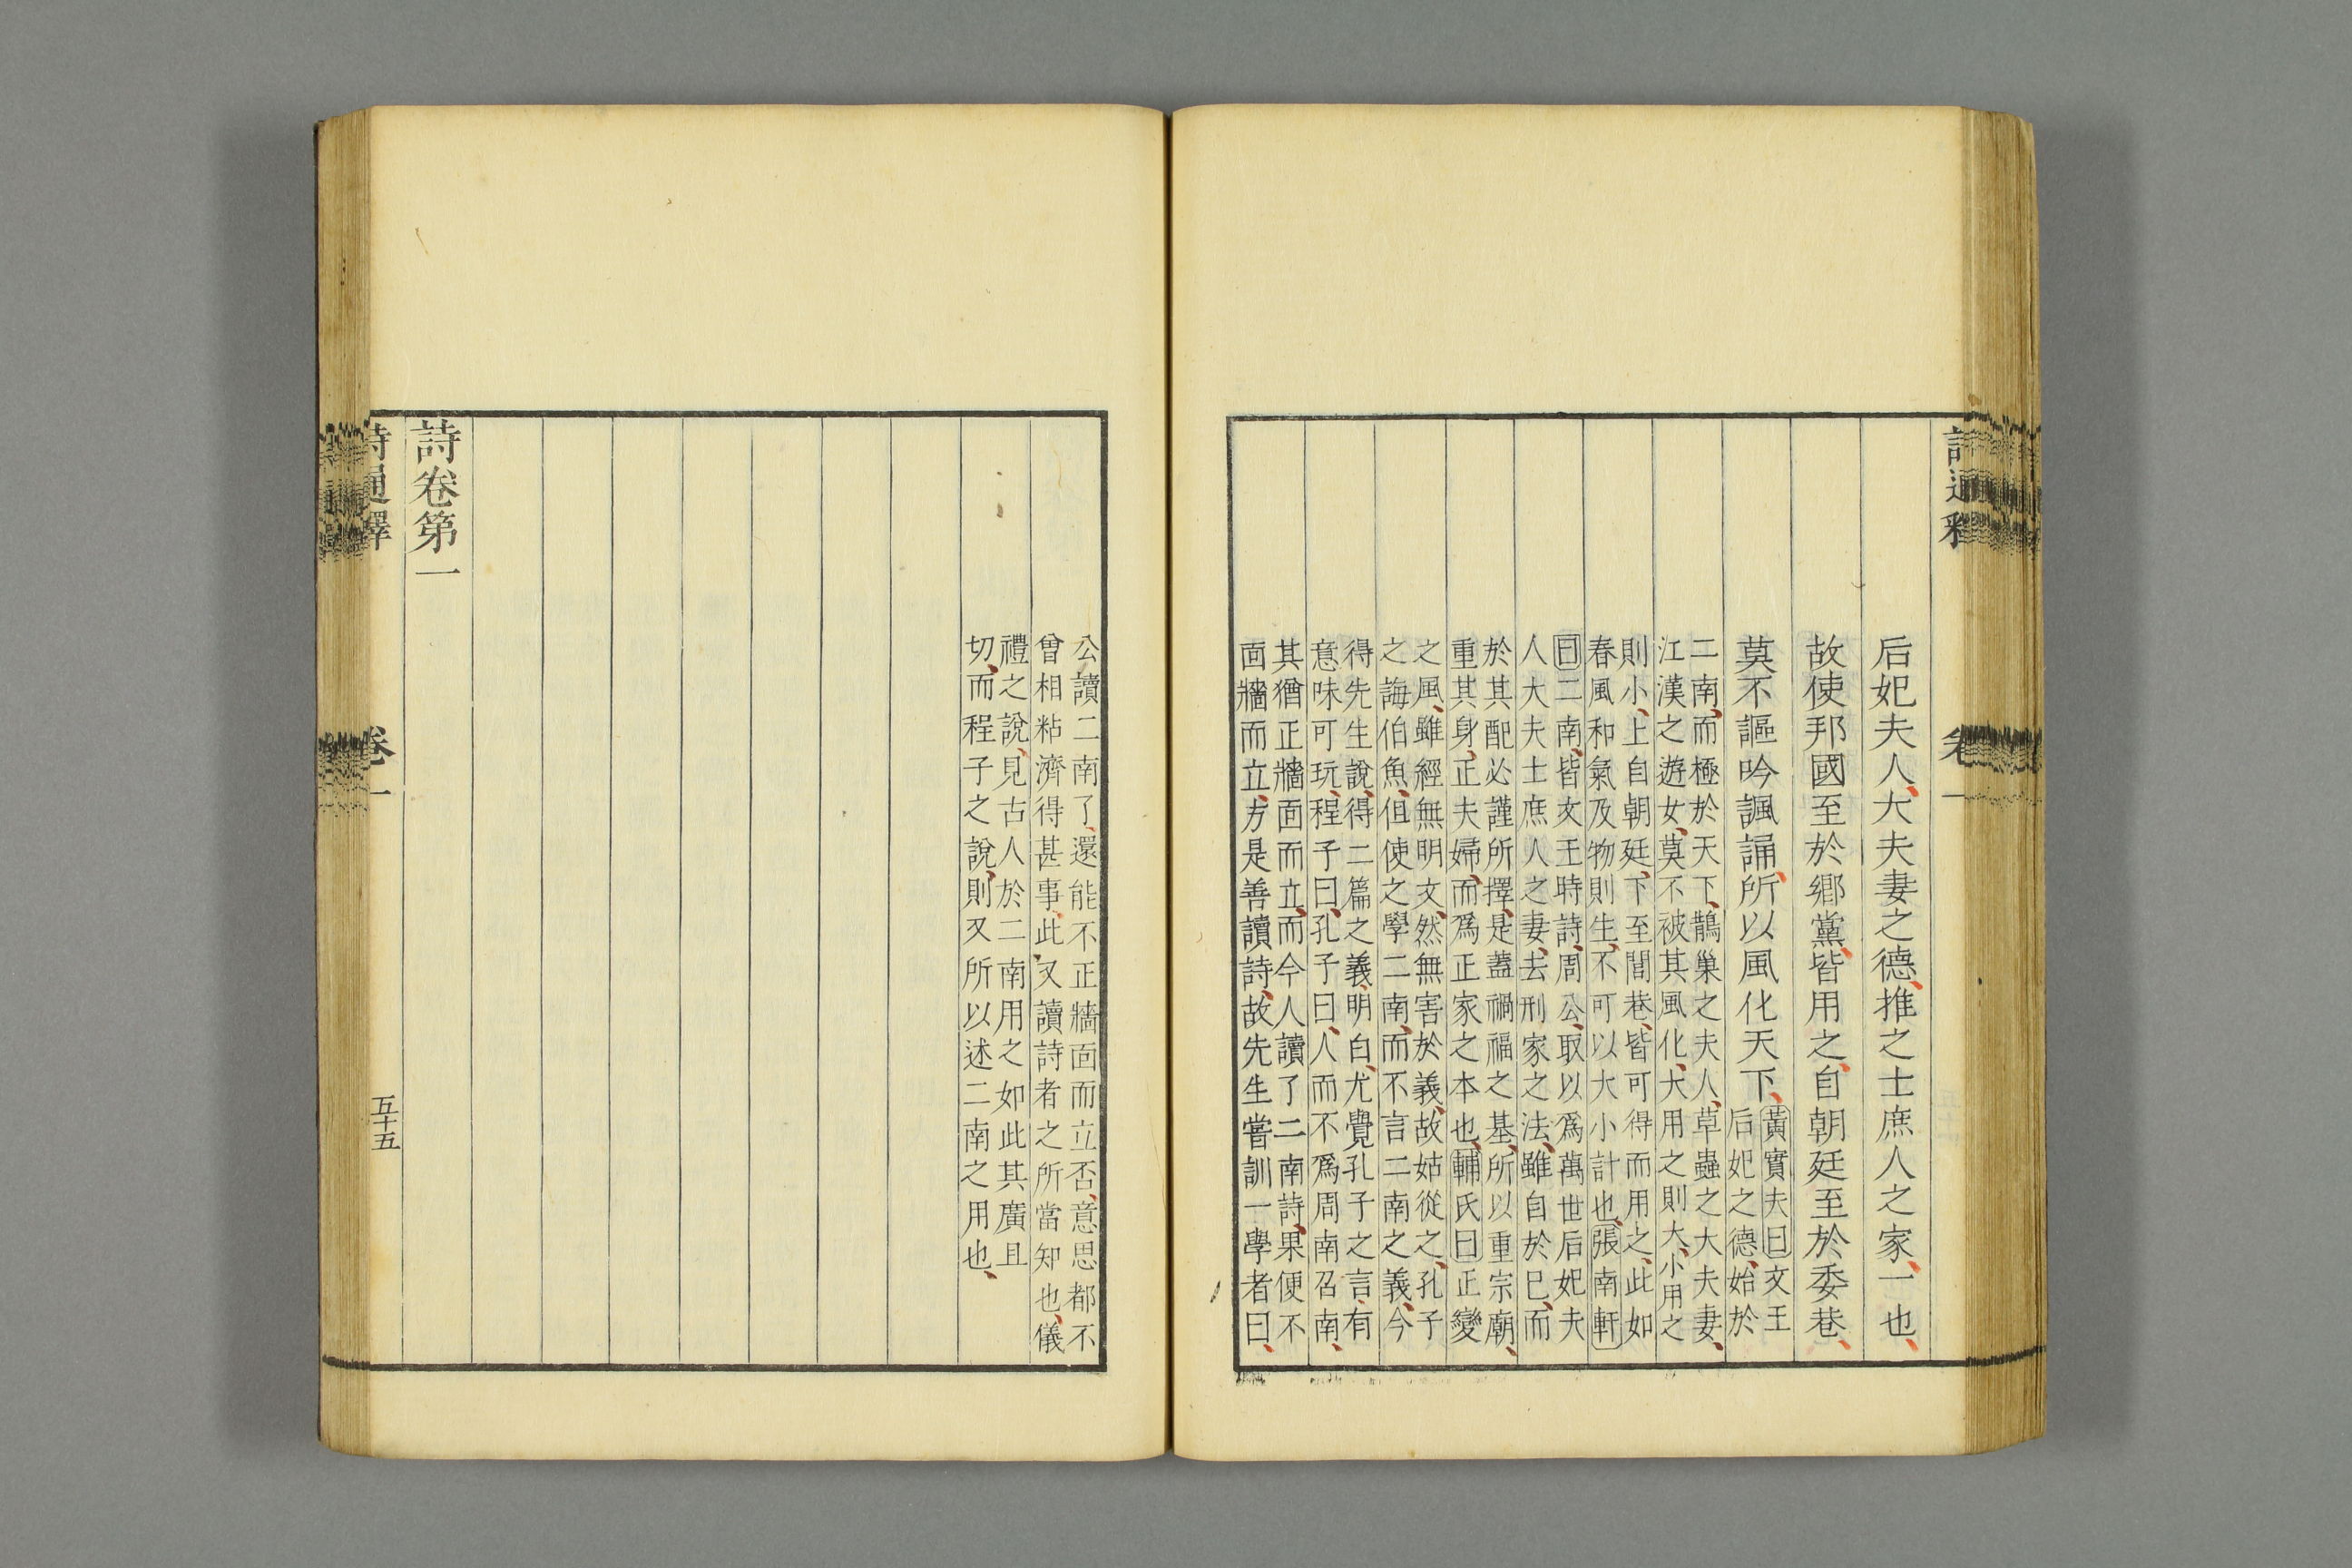 后妃夫人、大夫妻之德、推之士庶人之家、一也、
故使邦國至於鄉黨、皆用之、自朝廷至於委巷、
莫不謳吟諷誦、所以風化天下、
黃實夫曰文王
后妃之德、始於
二南、而極於天下、鵲巢之夫人、草蟲之大夫妻、
江漢之遊女、莫不被其風化、大用之則大、小用之
則小、上自朝廷、下至閭巷、皆可得而用之、此如
春風和氣及物則生、不可以大小計也、張南軒
曰二南、皆文王時詩、周公、取以爲萬世后妃夫
人大夫士庶人之妻、去刑家之法、雖自於巳、而
於其配必謹所擇、是蓋禍福之基、所以重宗廟、
重其身、正夫婦、而爲正家之本也、輔氏曰正變
之風、雖經無明文、然無害於義、故姑從之、孔子
之誨伯魚、但使之學二南、而不言二南之義、今
得先生說、得二篇之義、明白、尤覺孔子之言、有
意味可玩、程子曰、孔子曰、人而不爲周南召南、
其猶正牆面而立、而今人讀了二南詩、果便不
面牆而立、方是善讀詩、故先生嘗訓一學者曰、
詩通釋
卷一
公讀二南了、還能不正牆面而立否、意思都不
曾相粘濟得甚事、此又讀詩者之所當知也、儀
禮之說、見古人於二南用之如此其廣且
切、而程子之說、則又所以述二南之用也、
詩卷第一
詩通釋
卷一
五十五